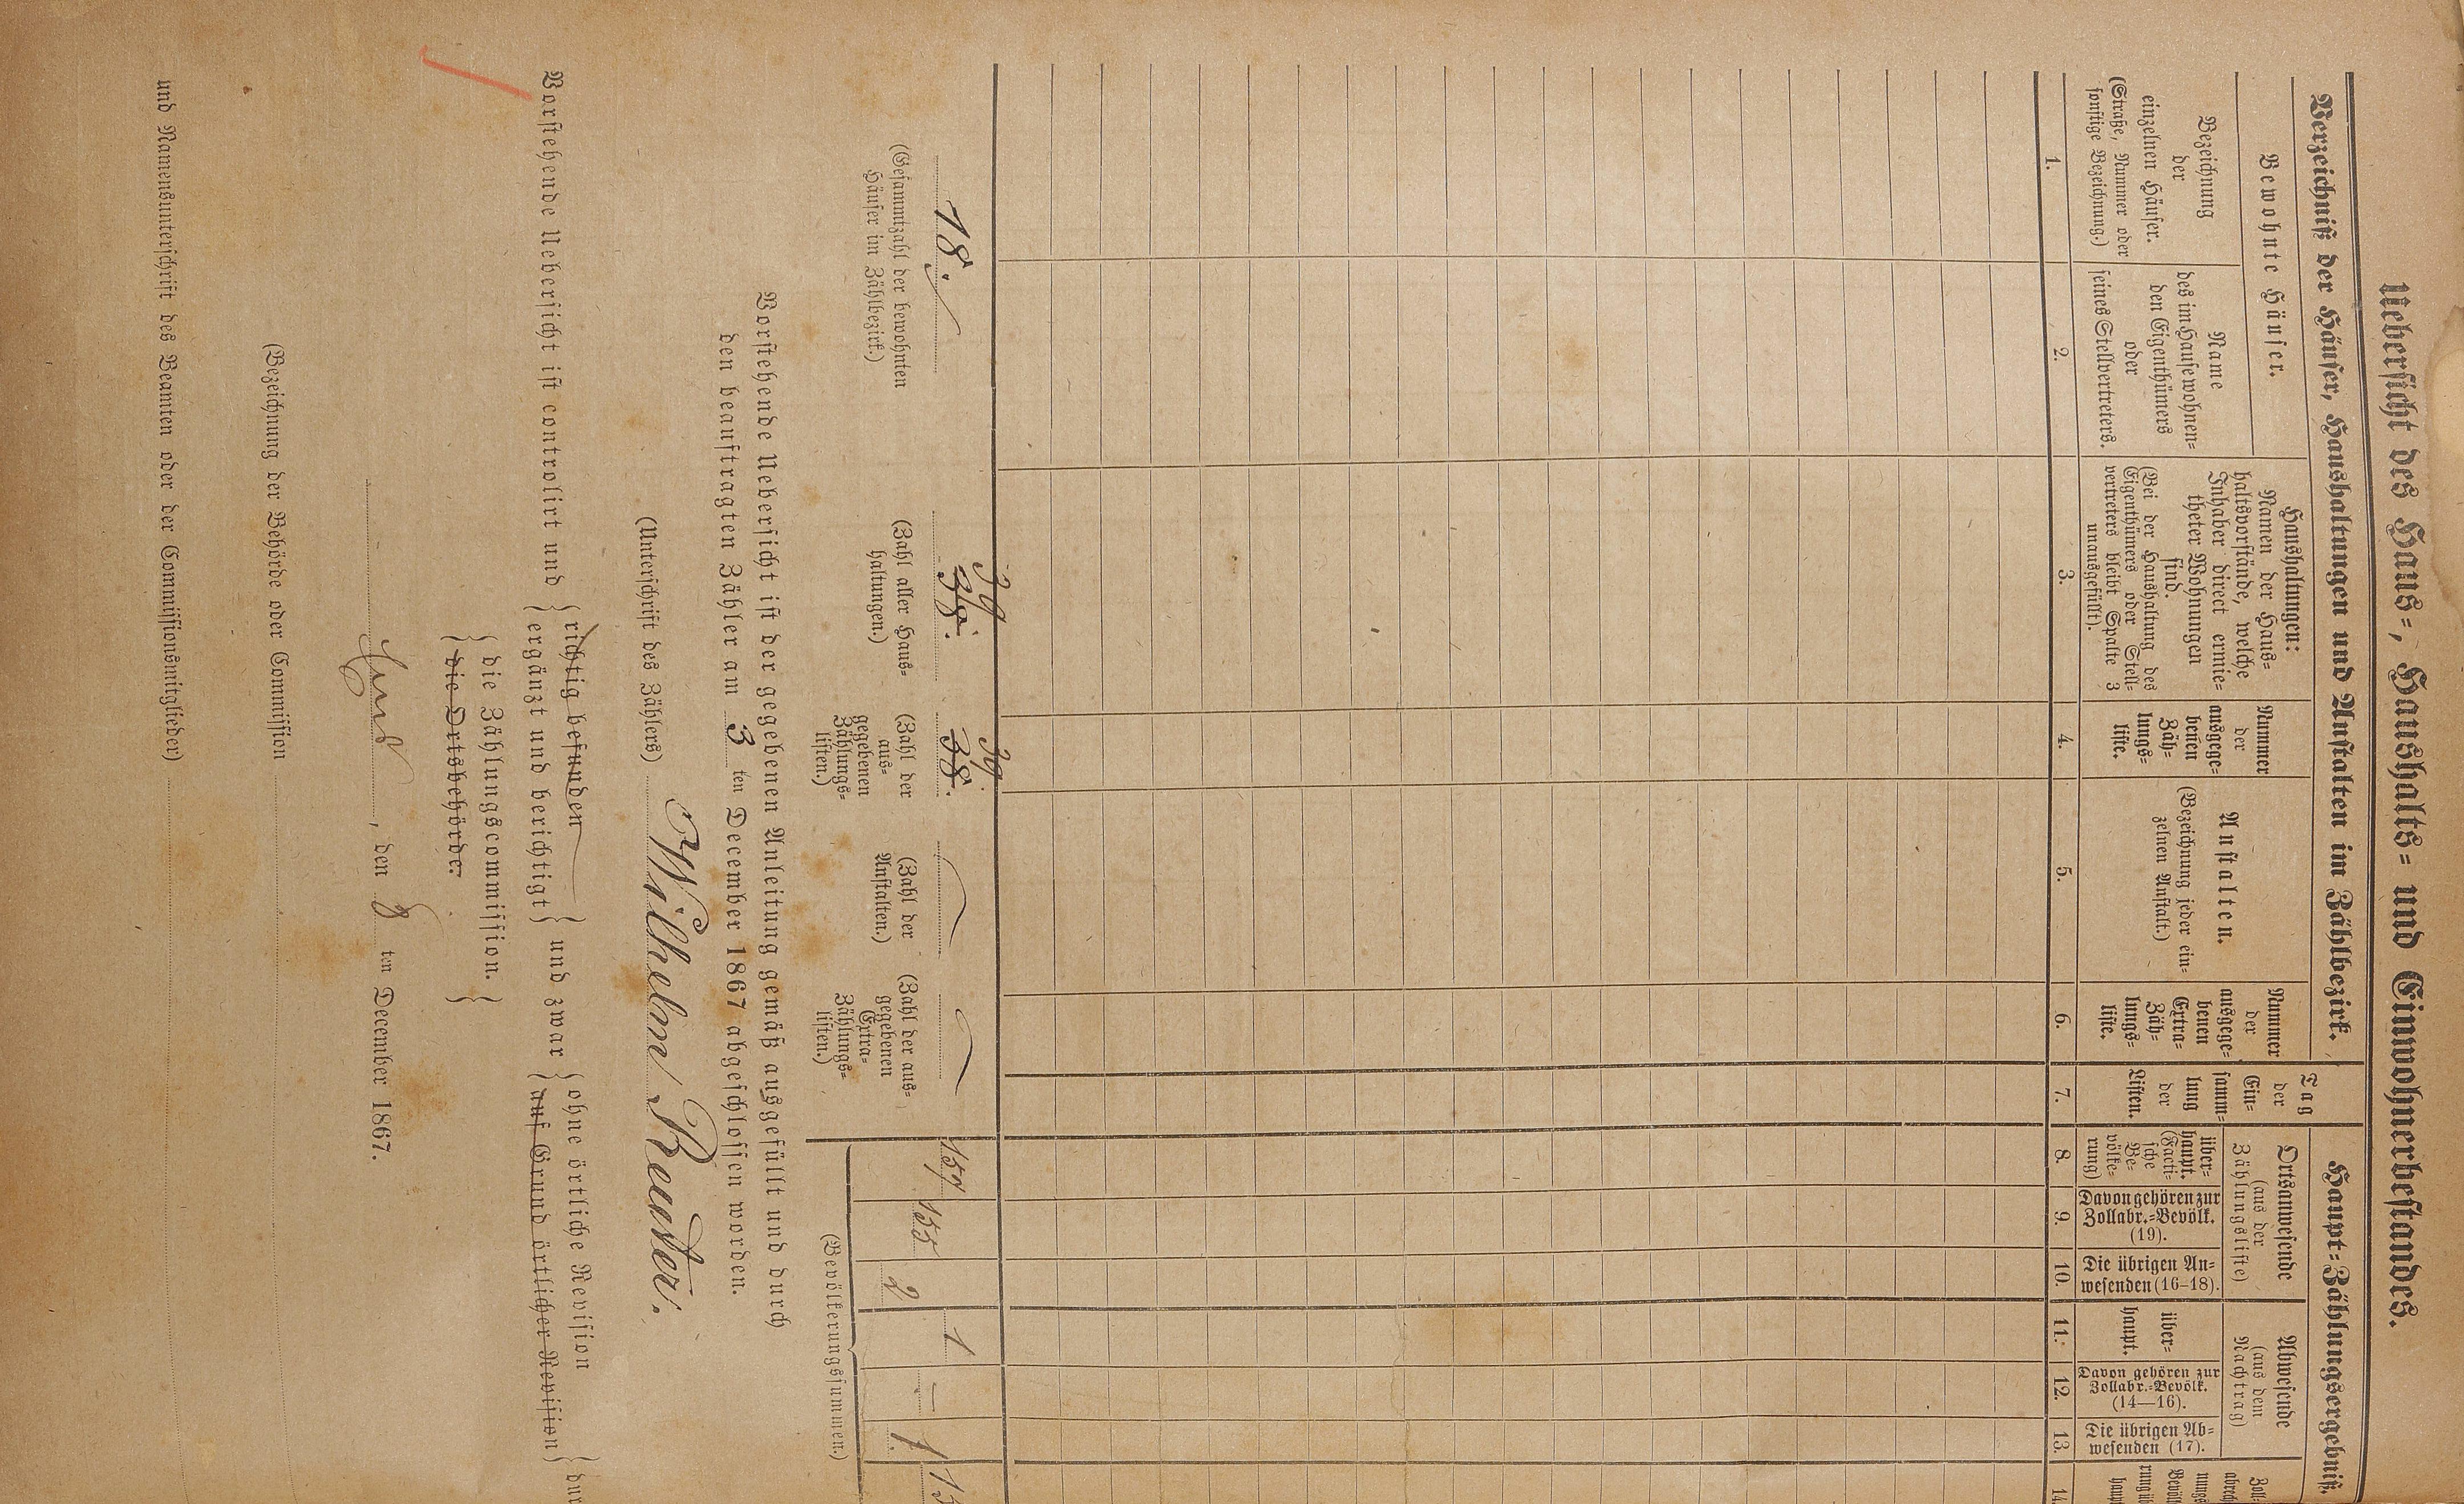 Uebersicht des Haus-, Haushalts- und Einwohnerbestandes.
Verzeichniß der Häuser, Haushaltungen und Anstalten im Zählbezirk.
Haupt-Zählungsergebniß.
Bewohnte Häuser.
Bezeichnung
der
einzelnen Häuser.
(Straße, Nummer oder
sonstige Bezeichnung.)
Name
des im Hause wohnen-
den Eigenthümers
oder
seines Stellvertreters.
Haushaltungen:
Namen der Haus-
haltsvorstände, welche
Inhaber direct ermie-
theter Wohnungen
sind.
(Bei der Haushaltung des
Eigenthümers oder Stell-
vertreters bleibt Spalte 3
unausgefüllt).
Nummer
der
ausgege-
benen
Zäh-
lungs-
liste.
Anstalten.
(Bezeichnung jeder ein-
zelnen Anstalt.)
Nummer
der
ausgege-
benen
Extra-
Zäh-
lungs-
liste.
Tag
der
Ein-
samm-
lung
der
Listen.
Ortsanwesende
(aus der
Zählungsliste)
über-
haupt.
(Facti-
sche
Be-
völke-
rung)
Davon gehören zur
Zollabr.-Bevölk.
(19).
Die übrigen An-
wesenden (16–18).
Abwesende
(aus dem
Nachtrag)
über-
haupt.
Davon gehören zur
Zollabr.-Bevölk.
(14—16).
Die übrigen Ab-
wesenden (17).
Zoll-
abrech
nungs
Bevöl
rung ü
haup
1. 2. 3. 4. 5. 6. 7. 8. 9. 10. 11. 12. 13. 14.
39 39
18. 38. 38. 157 155 2 1 — 1 15
(Gesammtzahl der bewohnten
Häuser im Zählbezirk.)
(Zahl aller Haus-
haltungen.)
(Zahl der
aus-
gegebenen
Zählungs-
listen.)
(Zahl der
Anstalten.)
(Zahl der aus-
gegebenen
Extra-
Zählungs-
listen.)
(Bevölkerungssummen.)
Vorstehende Uebersicht ist der gegebenen Anleitung gemäß ausgefüllt und durch
den beauftragten Zähler am 3 ten December 1867 abgeschlossen worden.
(Unterschrift des Zählers) Wilhelm Reuster.
Vorstehende Uebersicht ist controlirt und
richtig befunden
ergänzt und berichtigt
und zwar
ohne örtliche Revision
auf Grund örtlicher Revision
dur
die Zählungscommission.
die Ortsbehörde:
, den 8 ten December 1867.
(Bezeichnung der Behörde oder Commission
und Namensunterschrift des Beamten oder der Commissionsmitglieder)